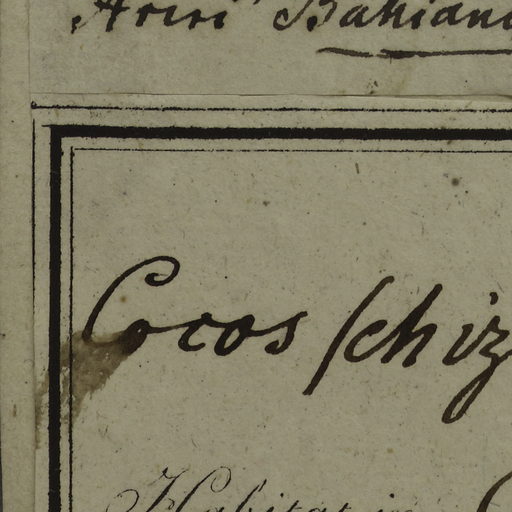 Ariri Bahiano
Cocos schiz
Habitat in